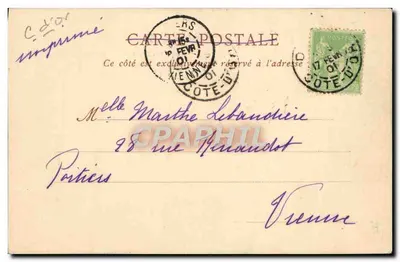 C. d'Or
imprimé
CARTE POSTALE
Ce côté est exclusivement réservé à l'adresse
ERS
FEVR
01
VIENNE
01
CÔTE-D'OR
D
17 FEVR
01
CÔTE-D'OR
Melle Marthe Lebandière
CPAPHIL
98 rue Renaudot
Poitiers
Vienne